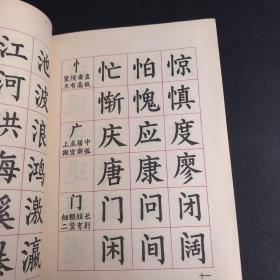 江 池
河 波
洪 浪
海 鸿
激
瀛
忄 忙 怕 惊
竖须垂直
点有高低
惭 愧 慎
广 庆 应 度
上点居中
撇宜渐弧
唐 康 廖
门 门 问 闭
二竖有别
闲 间 阔